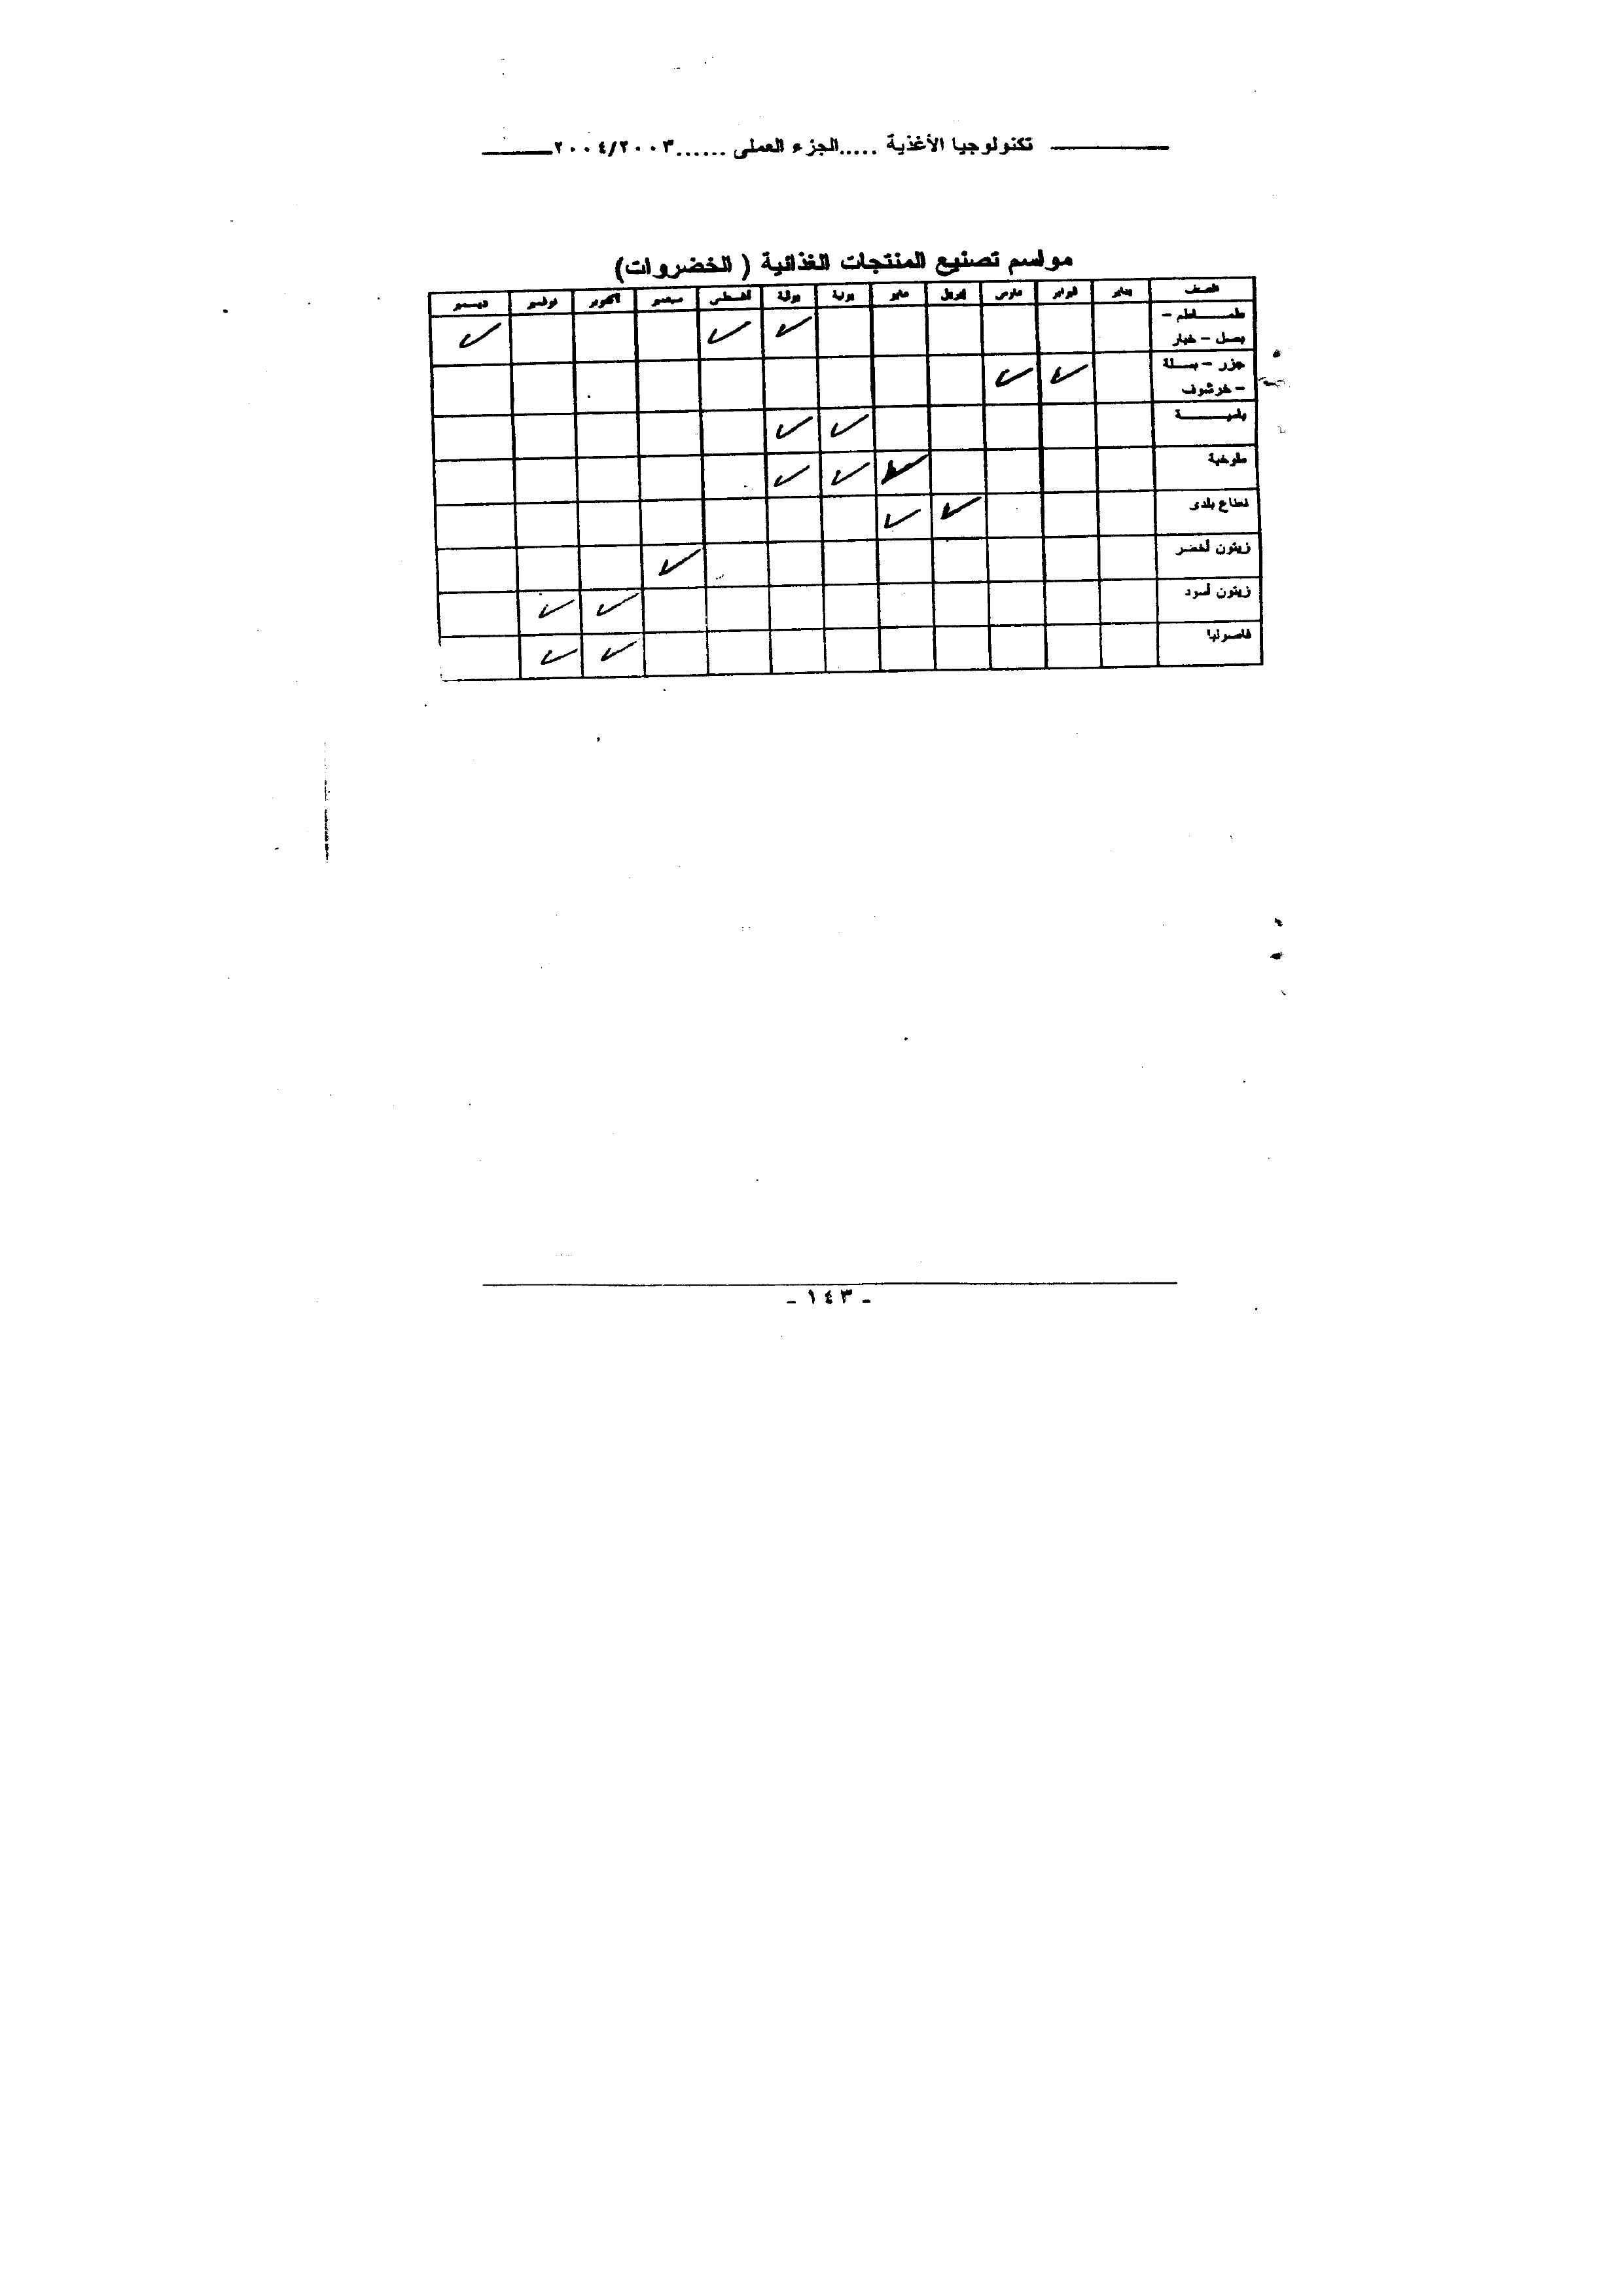 تكنولوجيا الأغذية .....الجزء العملى ......٢٠٠٤/٢٠٠٣
مواسم تصنيع المنتجات الغذائية ( الخضروات)
الصنف يناير فبراير مارس إبريل مايو يونية يولية أغسطس سبتمبر أكتوبر نوفمبر ديسمبر
طمـــاطم – ✓ ✓ ✓
بصل – خيار
جزر – بسلة ✓ ✓
– خرشوف
باميـــة ✓ ✓
ملوخية ✓ ✓ ✓
نعناع بلدى ✓ ✓
زيتون أخضر ✓
زيتون أسود ✓ ✓
فاصوليا ✓ ✓
- ١٤٣ -